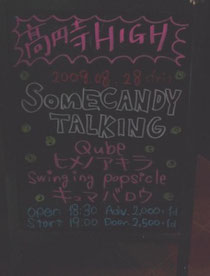 高円寺HIGH
2009.08.28 (fri)
SOMECANDY
TALKING
Qube
ヒメノアキラ
Swinging popsicle
キュマバロウ
Open 18:30 Adv. 2,000+1d
Start 19:00 Door. 2,500+1d